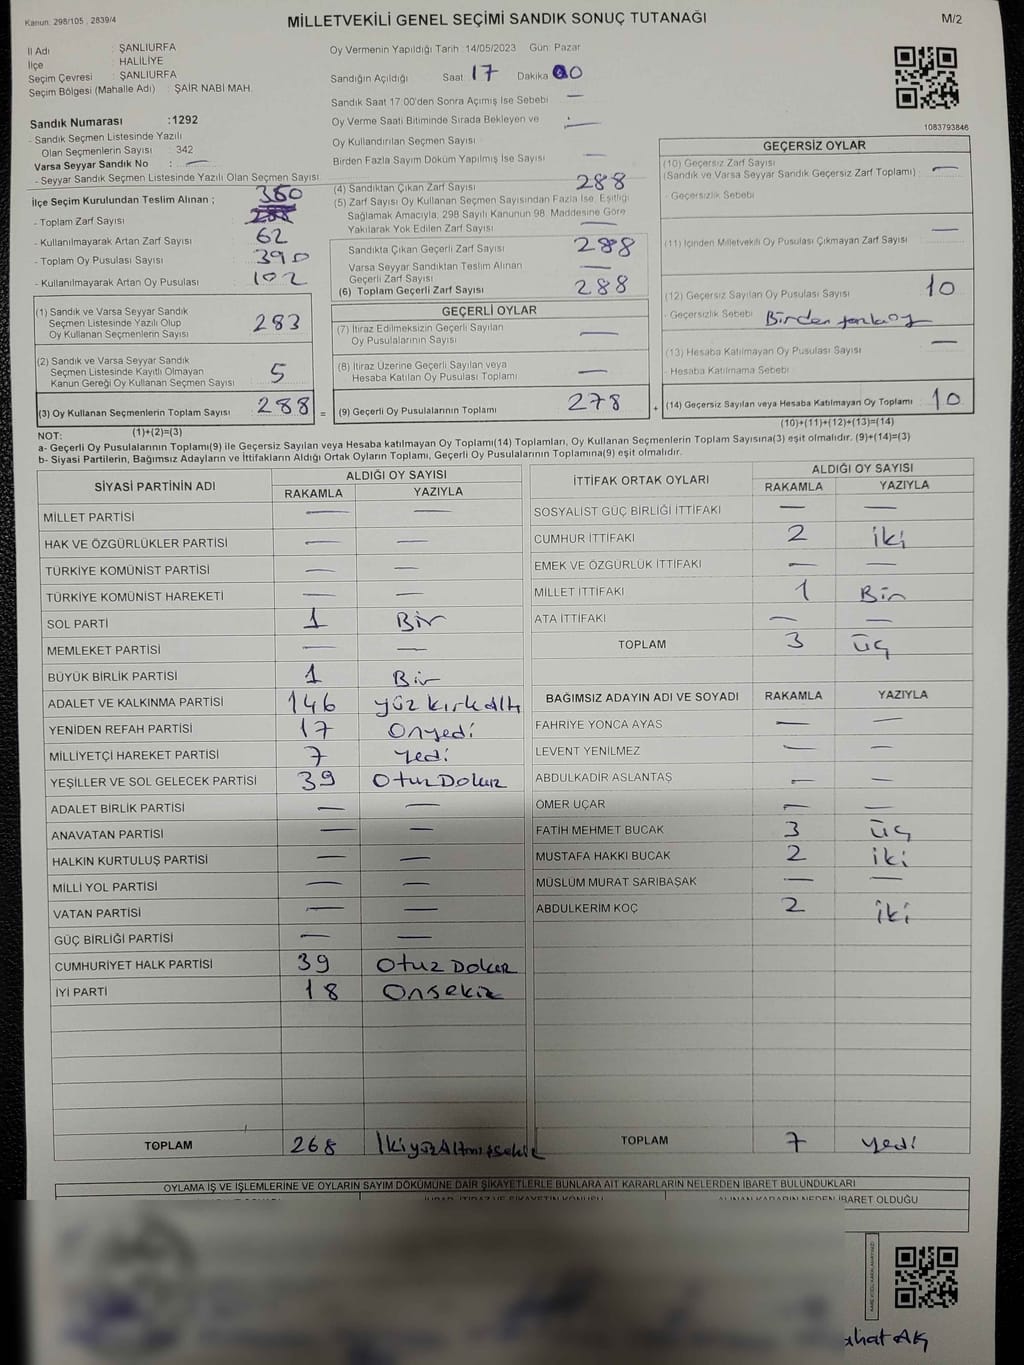 Kanun: 298/105 , 2839/4
MİLLETVEKİLİ GENEL SEÇİMİ SANDIK SONUÇ TUTANAĞI
M/2
İl Adı : ŞANLIURFA
İlçe : HALİLİYE
Seçim Çevresi : ŞANLIURFA
Seçim Bölgesi (Mahalle Adı) : ŞAİR NABİ MAH.
Oy Vermenin Yapıldığı Tarih : 14/05/2023 Gün: Pazar
Sandığın Açıldığı Saat 17 Dakika 00
Sandık Saat 17:00'den Sonra Açımış İse Sebebi —
Oy Verme Saati Bitiminde Sırada Bekleyen ve
Oy Kullandırılan Seçmen Sayısı : —
Birden Fazla Sayım Döküm Yapılmış İse Sayısı —
1083793846
Sandık Numarası :1292
- Sandık Seçmen Listesinde Yazılı
Olan Seçmenlerin Sayısı : 342
Varsa Seyyar Sandık No : —
- Seyyar Sandık Seçmen Listesinde Yazılı Olan Seçmen Sayısı
İlçe Seçim Kurulundan Teslim Alınan ; 350
- Toplam Zarf Sayısı : 288
- Kullanılmayarak Artan Zarf Sayısı : 62
- Toplam Oy Pusulası Sayısı : 390
- Kullanılmayarak Artan Oy Pusulası : 102
(1) Sandık ve Varsa Seyyar Sandık
Seçmen Listesinde Yazılı Olup
Oy Kullanan Seçmenlerin Sayısı : 283
(2) Sandık ve Varsa Seyyar Sandık
Seçmen Listesinde Kayıtlı Olmayan
Kanun Gereği Oy Kullanan Seçmen Sayısı : 5
(3) Oy Kullanan Seçmenlerin Toplam Sayısı : 288 =
(1)+(2)=(3)
(4) Sandıktan Çıkan Zarf Sayısı 288
(5) Zarf Sayısı Oy Kullanan Seçmen Sayısından Fazla İse, Eşitliği
Sağlamak Amacıyla, 298 Sayılı Kanunun 98. Maddesine Göre
Yakılarak Yok Edilen Zarf Sayısı :
Sandıkta Çıkan Geçerli Zarf Sayısı 288
Varsa Seyyar Sandıktan Teslim Alınan
Geçerli Zarf Sayısı —
(6) Toplam Geçerli Zarf Sayısı 288
GEÇERLİ OYLAR
(7) İtiraz Edilmeksizin Geçerli Sayılan
Oy Pusulalarının Sayısı —
(8) İtiraz Üzerine Geçerli Sayılan veya
Hesaba Katılan Oy Pusulası Toplamı —
(9) Geçerli Oy Pusulalarının Toplamı 278 +
GEÇERSİZ OYLAR
(10) Geçersiz Zarf Sayısı
(Sandık ve Varsa Seyyar Sandık Geçersiz Zarf Toplamı) : —
- Geçersizlik Sebebi :
(11) İçinden Milletvekili Oy Pusulası Çıkmayan Zarf Sayısı —
(12) Geçersiz Sayılan Oy Pusulası Sayısı 10
- Geçersizlik Sebebi : Birden fazla oy
(13) Hesaba Katılmayan Oy Pusulası Sayısı —
- Hesaba Katılmama Sebebi :
(14) Geçersiz Sayılan veya Hesaba Katılmayan Oy Toplamı 10
(10)+(11)+(12)+(13)=(14)
NOT:
a- Geçerli Oy Pusulalarının Toplamı(9) ile Geçersiz Sayılan veya Hesaba katılmayan Oy Toplamı(14) Toplamları, Oy Kullanan Seçmenlerin Toplam Sayısına(3) eşit olmalıdır. (9)+(14)=(3)
b- Siyasi Partilerin, Bağımsız Adayların ve İttifakların Aldığı Ortak Oyların Toplamı, Geçerli Oy Pusulalarının Toplamına(9) eşit olmalıdır.
SİYASİ PARTİNİN ADI ALDIĞI OY SAYISI
RAKAMLA YAZIYLA
MİLLET PARTİSİ — —
HAK VE ÖZGÜRLÜKLER PARTİSİ — —
TÜRKİYE KOMÜNİST PARTİSİ — —
TÜRKİYE KOMÜNİST HAREKETİ — —
SOL PARTİ 1 Bir
MEMLEKET PARTİSİ — —
BÜYÜK BİRLİK PARTİSİ 1 Bir
ADALET VE KALKINMA PARTİSİ 146 yüz kırk altı
YENİDEN REFAH PARTİSİ 17 Onyedi
MİLLİYETÇİ HAREKET PARTİSİ 7 yedi
YEŞİLLER VE SOL GELECEK PARTİSİ 39 Otuz Dokuz
ADALET BİRLİK PARTİSİ — —
ANAVATAN PARTİSİ — —
HALKIN KURTULUŞ PARTİSİ — —
MİLLİ YOL PARTİSİ — —
VATAN PARTİSİ — —
GÜÇ BİRLİĞİ PARTİSİ — —
CUMHURİYET HALK PARTİSİ 39 Otuz Dokuz
İYİ PARTİ 18 Onsekiz
TOPLAM 268 İkiyüzAltmışsekiz
İTTİFAK ORTAK OYLARI ALDIĞI OY SAYISI
RAKAMLA YAZIYLA
SOSYALİST GÜÇ BİRLİĞİ İTTİFAKI — —
CUMHUR İTTİFAKI 2 iki
EMEK VE ÖZGÜRLÜK İTTİFAKI — —
MİLLET İTTİFAKI 1 Bir
ATA İTTİFAKI — —
TOPLAM 3 üç
BAĞIMSIZ ADAYIN ADI VE SOYADI RAKAMLA YAZIYLA
FAHRİYE YONCA AYAS — —
LEVENT YENİLMEZ — —
ABDULKADİR ASLANTAŞ — —
ÖMER UÇAR — —
FATİH MEHMET BUCAK 3 üç
MUSTAFA HAKKI BUCAK 2 iki
MÜSLÜM MURAT SARIBAŞAK — —
ABDULKERİM KOÇ 2 iki
TOPLAM 7 yedi
OYLAMA İŞ VE İŞLEMLERİNE VE OYLARIN SAYIM DÖKÜMÜNE DAİR ŞİKAYETLERLE BUNLARA AİT KARARLARIN NELERDEN İBARET BULUNDUKLARI
İTİRAZ VE ŞİKAYETİN KONUSU ALINAN KARARIN NEDEN İBARET OLDUĞU